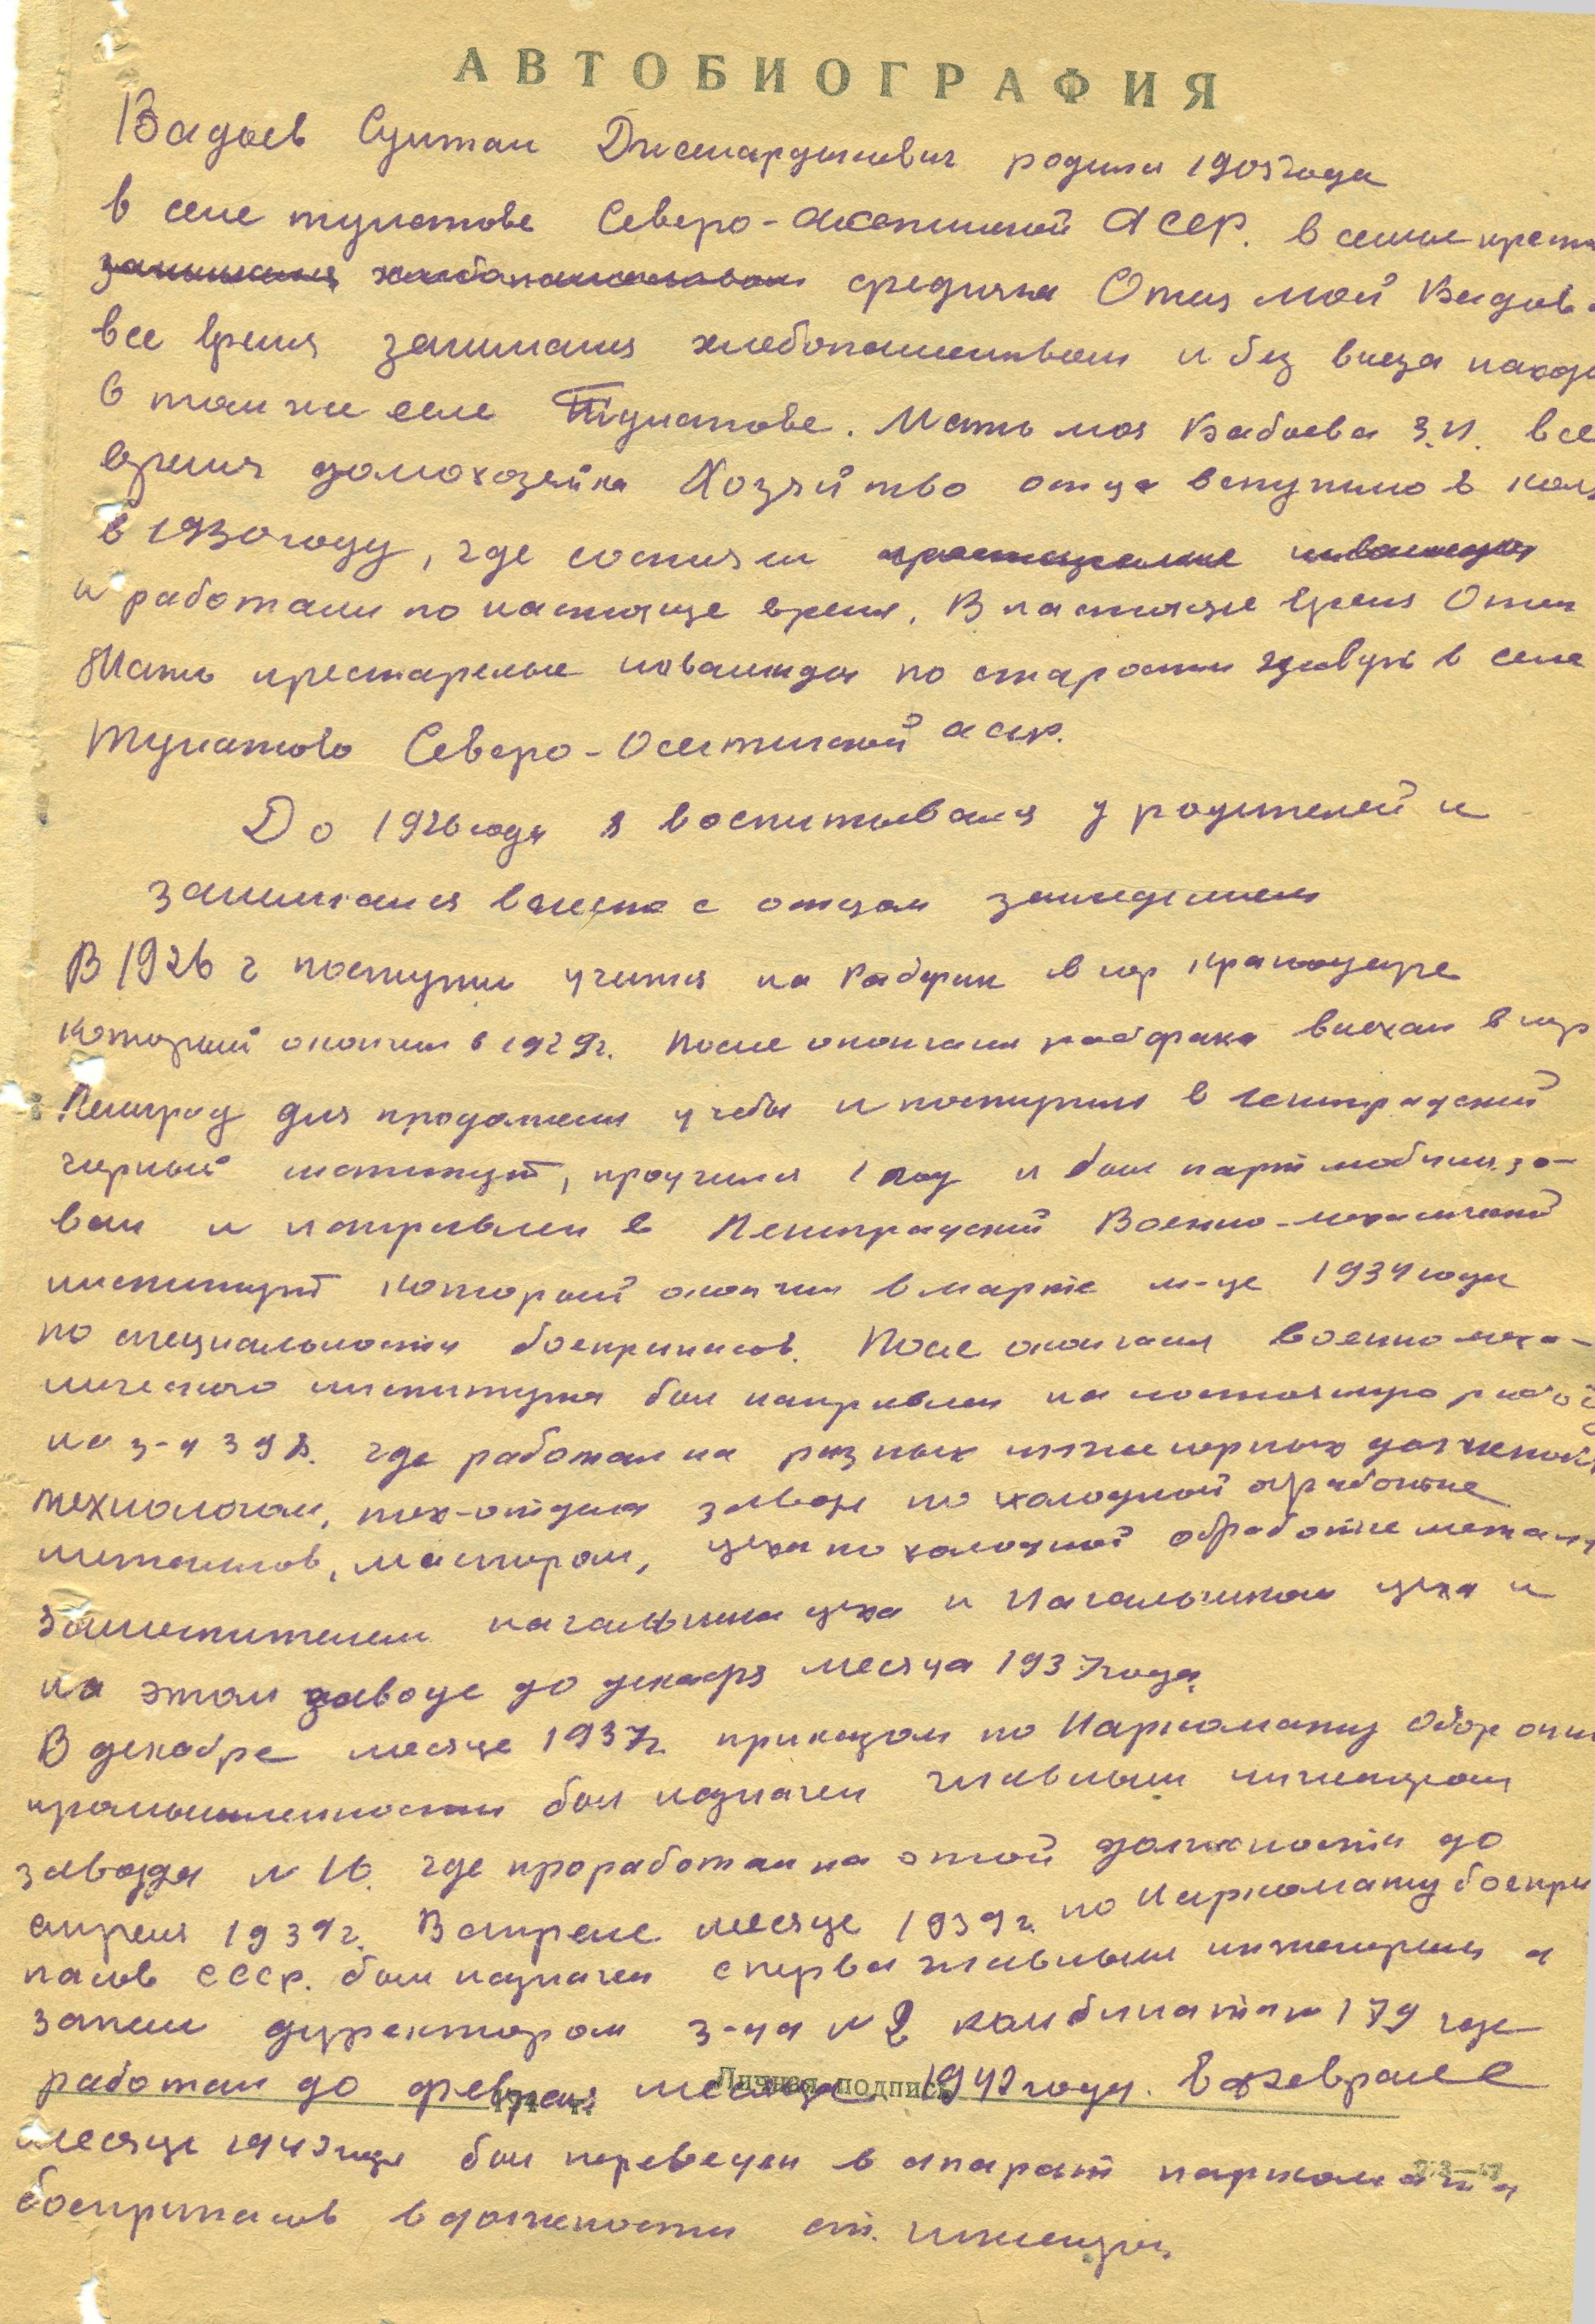 АВТОБИОГРАФИЯ
Бадоев Султан родился 1905 года
в селе тулатове Северо-Асетинской АССР. в семье крест
занимался хлебопашеством средняка Отец мой Бадоев
все время занимался хлебопашеством и без выезда находи
в том же селе Тулатове. Мать моя Бадоева З.И. все
время домохозяйка Хозяйтво отца вступило в кол
в 1930 году, где состояли престарелые инвалиды
и работали по настояще время. В настояще время Отец
Мать престарелые инвалиды по старости живуть в селе
тулатово Северо-Осетинской АССР.
До 1926 года я воспитывался у родителей и
занимался вместе с отцом земледелием
В 1926 г поступил учится на Рабфак в гор Краснодаре
который окончил в 1929 г. После окончания рабфака выехал в гор
Ленинград для продолжения учебы и поступил в Ленинградский
горный институт, проучился 1 год и был парт мобилизо-
ван и направлен в Ленинградский Военно-механический
институт который окончил в марте м-це 1934 года
по специальности боеприпасов. После окончания военно меха-
нического института был направлен на постоянную работ
на з-д 398. где работал на разных инженерных должностях
технологом, тех-отдела завода по холодной обработке
металлов, мастером, цеха по холодной обработке металл
заместителем начальника цеха и Начальником цеха и
на этом заводе до декабря месяца 1937 года.
В декабре месяце 1937 г. приказом по Наркомату Оборонн
промышленности был назначен главным инженером
завода N 16. где проработал на этой должности до
апреля 1939 г. В апреле месяце 1939 г. по Наркомату боепри
пасов СССР. был назначен сперва главным инженером а
затем директором з-да N 2 комбината N 179 где
работал до февраля месяца 1942 году. в феврале
Личная подпись
месяце 1942 года был переведен в апарат наркомата
боеприпасов в должности ст. инженера.